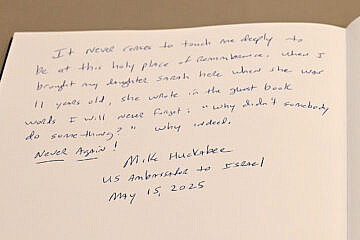 It never ceases to touch me deeply to
be at this holy place of remembrance. When I
brought my daughter Sarah here when she was
11 years old, she wrote in the guest book
words I will never forget: "Why didn't somebody
do something?" Why indeed.
Never Again!
Mike Huckabee
US Ambassador to Israel
May 15, 2025